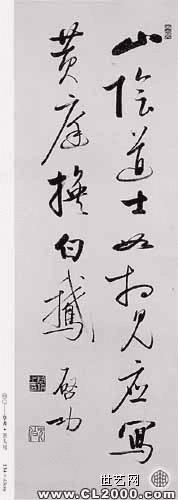 山阴道士如相见应写
黄庭换白鹅
启功
世艺网
www.CL2000.com